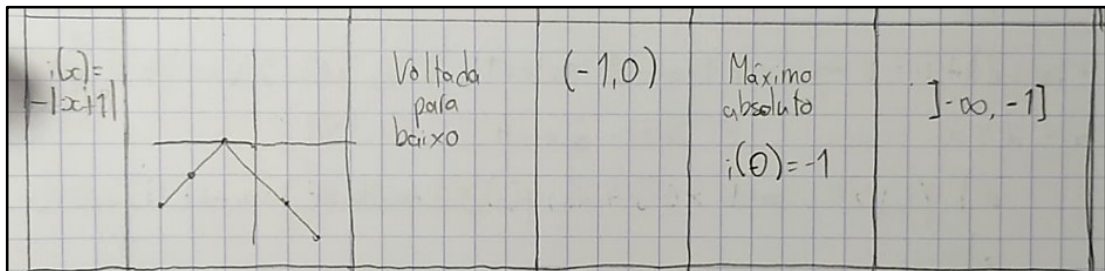 i(x)=
-|x+1|
Voltada
para
baixo
(-1,0)
Máximo
absoluto
i(0)=-1
]-∞,-1]